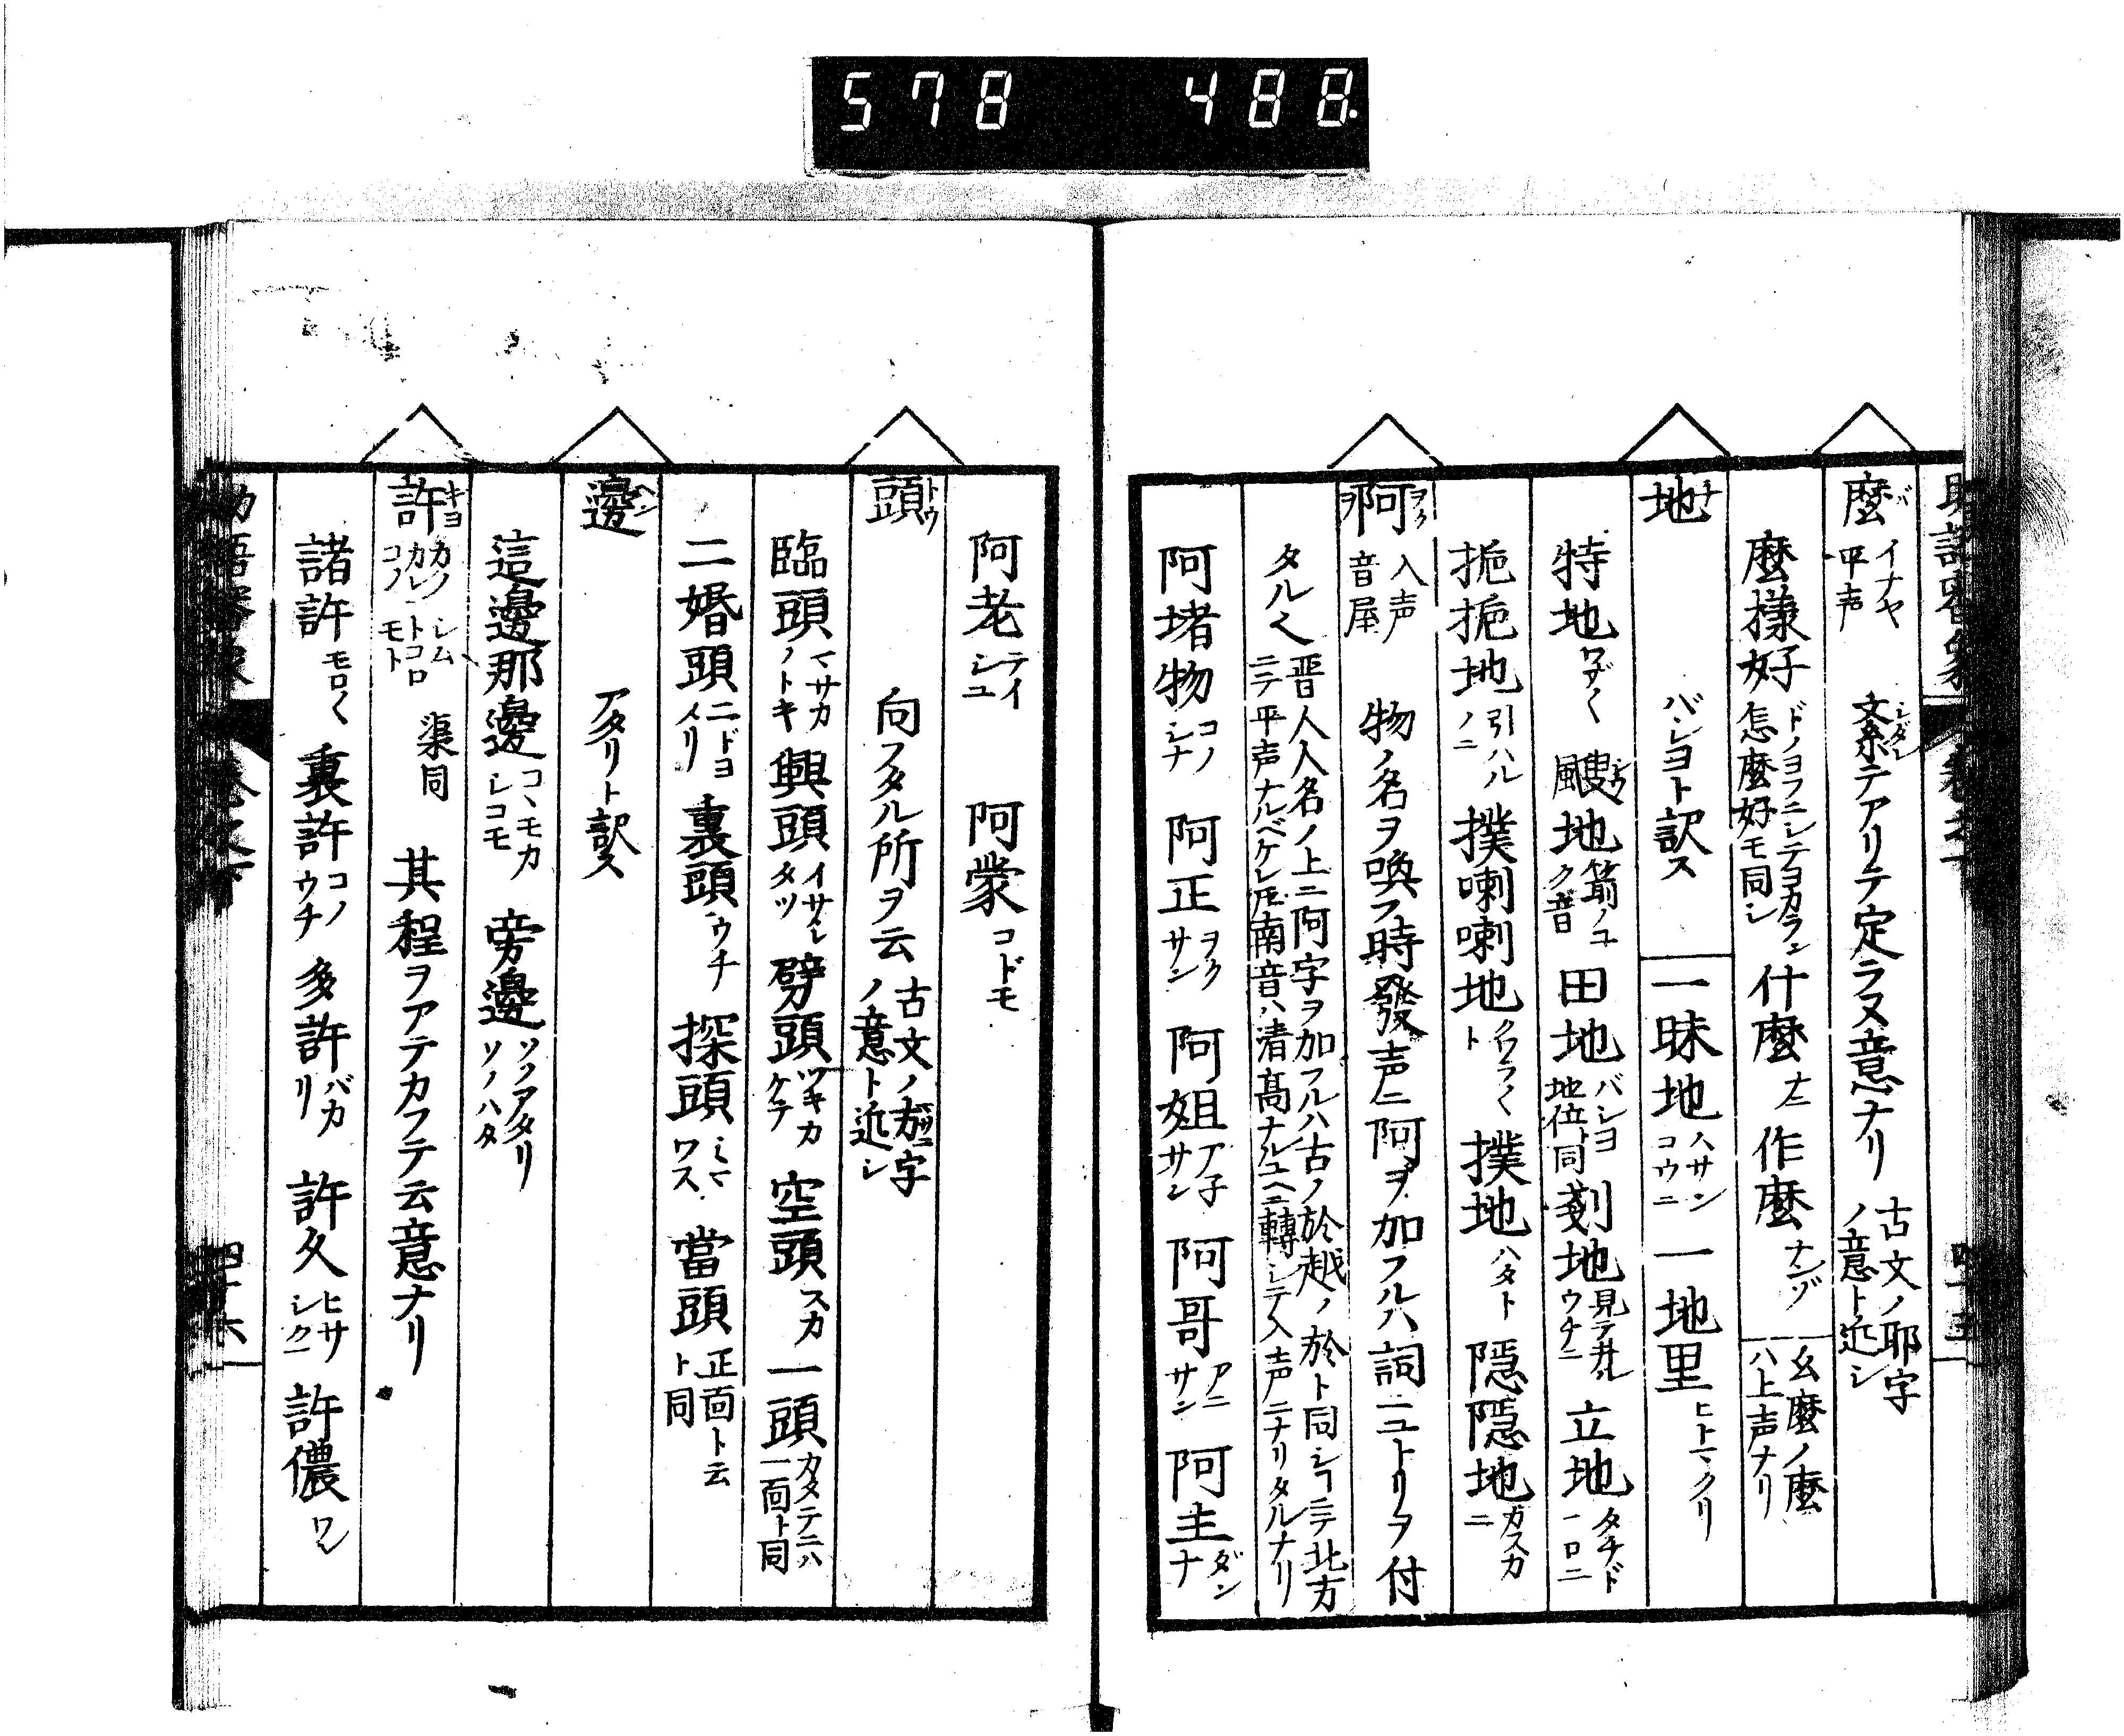 578 488
麼バ イナヤ 平声 紊シダレテアリテ定ラヌ意ナリ 古文ノ耶字ノ意ト近シ
麼様好 ドノヨフニシテヨカラン 怎麼好モ同シ 什麼ナニ 作麼ナンゾ 幺麼ノ麼ハ上声ナリ
地ナ バシヨト訳ス 一昧地ハサンコウニ 一地里ヒトマクリ
特地ワザ〱 颼地箭ノユク音 田地バシヨ 地位同 剗地見テ井ルウチニ 立地タチドコロニ
扼扼地引ハルノニ 撲喇喇地クワラ〱ト 撲地ハタト 隠隠地カスカニ
阿ヲク ヲ 入声 音屋 物ノ名ヲ喚フ時發声ニ阿ヲ加フルハ詞ニユトリヲ付
タル也 晋人人名ノ上ニ阿字ヲ加フルハ古ノ於越ノ於ト同シヿニテ北方ニテ平声ナルベケレ𪜈南音ハ清高ナルユヘニ轉シテ入声ニナリタルナリ
阿堵物コノシナ 阿正ヲクサン 阿姐アネサン 阿哥アニサン 阿主ダンナ
阿老テイシユ 阿蒙コドモ
頭トウ 向フタル所ヲ云 古文ノ然字ノ意ト近シ
臨頭マサカノトキ 興頭イサミタツ 劈頭ヅキカケテ 空頭スカ 一頭カタテニハ 一面ト同
二婚頭ニドヨメイリ 裏頭ウチ 探頭ミマワス 當頭正面ト云ト同
邊ヘン アタリト訳ス
這邊那邊コヽモカシコモ 旁邊ソノアタリ ソノハタ
許キヨ カノ カレ コノ シム トコロ モト 渠同 其程ヲアテカフテ云意ナリ
諸許モロ〱 裏許コノウチ 多許バカリ 許久ヒサシク 許儂ワシ